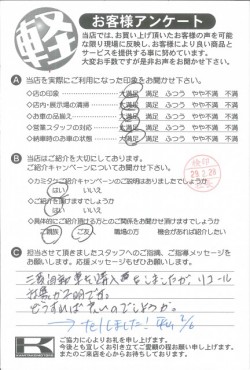 軽
お客様アンケート
当店では、お買い上げ頂いたお客様の声を可能
な限り現場に反映し、お客様により良い商品と
サービスを提供する車に努めています。
大変お手数ですが是非お声をお聞かせ下さい。
A 当店を実際にご利用になった印象をお聞かせ下さい。
◇店の印象 大満足 満足 ふつう やや不満 不満
◇店内・展示場の清掃 大満足 満足 ふつう やや不満 不満
◇お車の品揃え 大満足 満足 ふつう やや不満 不満
◇営業スタッフの対応 大満足 満足 ふつう やや不満 不満
◇納車時のお車の状態 大満足 満足 ふつう やや不満 不満
B 当店はご紹介を大切にしております。
ご紹介キャンペーンについてお聞かせ下さい。
◇カミタケご紹介キャンペーンのご説明はありましたでしょうか
はい いいえ
◇ご紹介キャンペーンにご興味はございますでしょうか
はい いいえ
◇具体的にご紹介頂ける方とのご関係をお聞かせ頂けますでしょうか
ご親族 ご友人 職場の方 機会があれば紹介したい
C 担当させて頂きましたスタッフへのご指摘、ご感想メッセージを
お願いします。応援メッセージもぜひお願いします。
リコール
→telしました!
ご協力に心よりお礼を申し上げます。
今後とも宜しくお引き立てご愛顧の程お願い申し上げます。
またのご来店を心からお待ちしております。